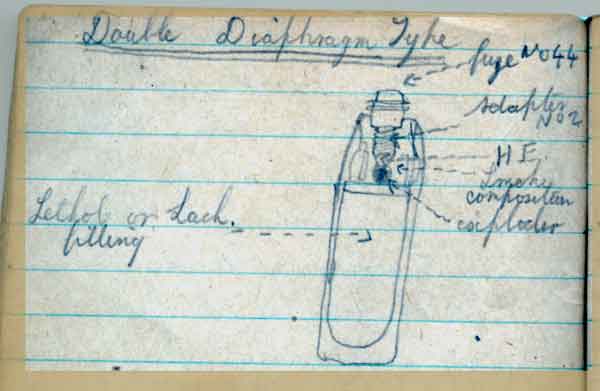 Double Diaphragm Type
fuze No 44
Adapter
No 2
H E.
Smoke
composition
exploder
Lethal or Lach.
filling